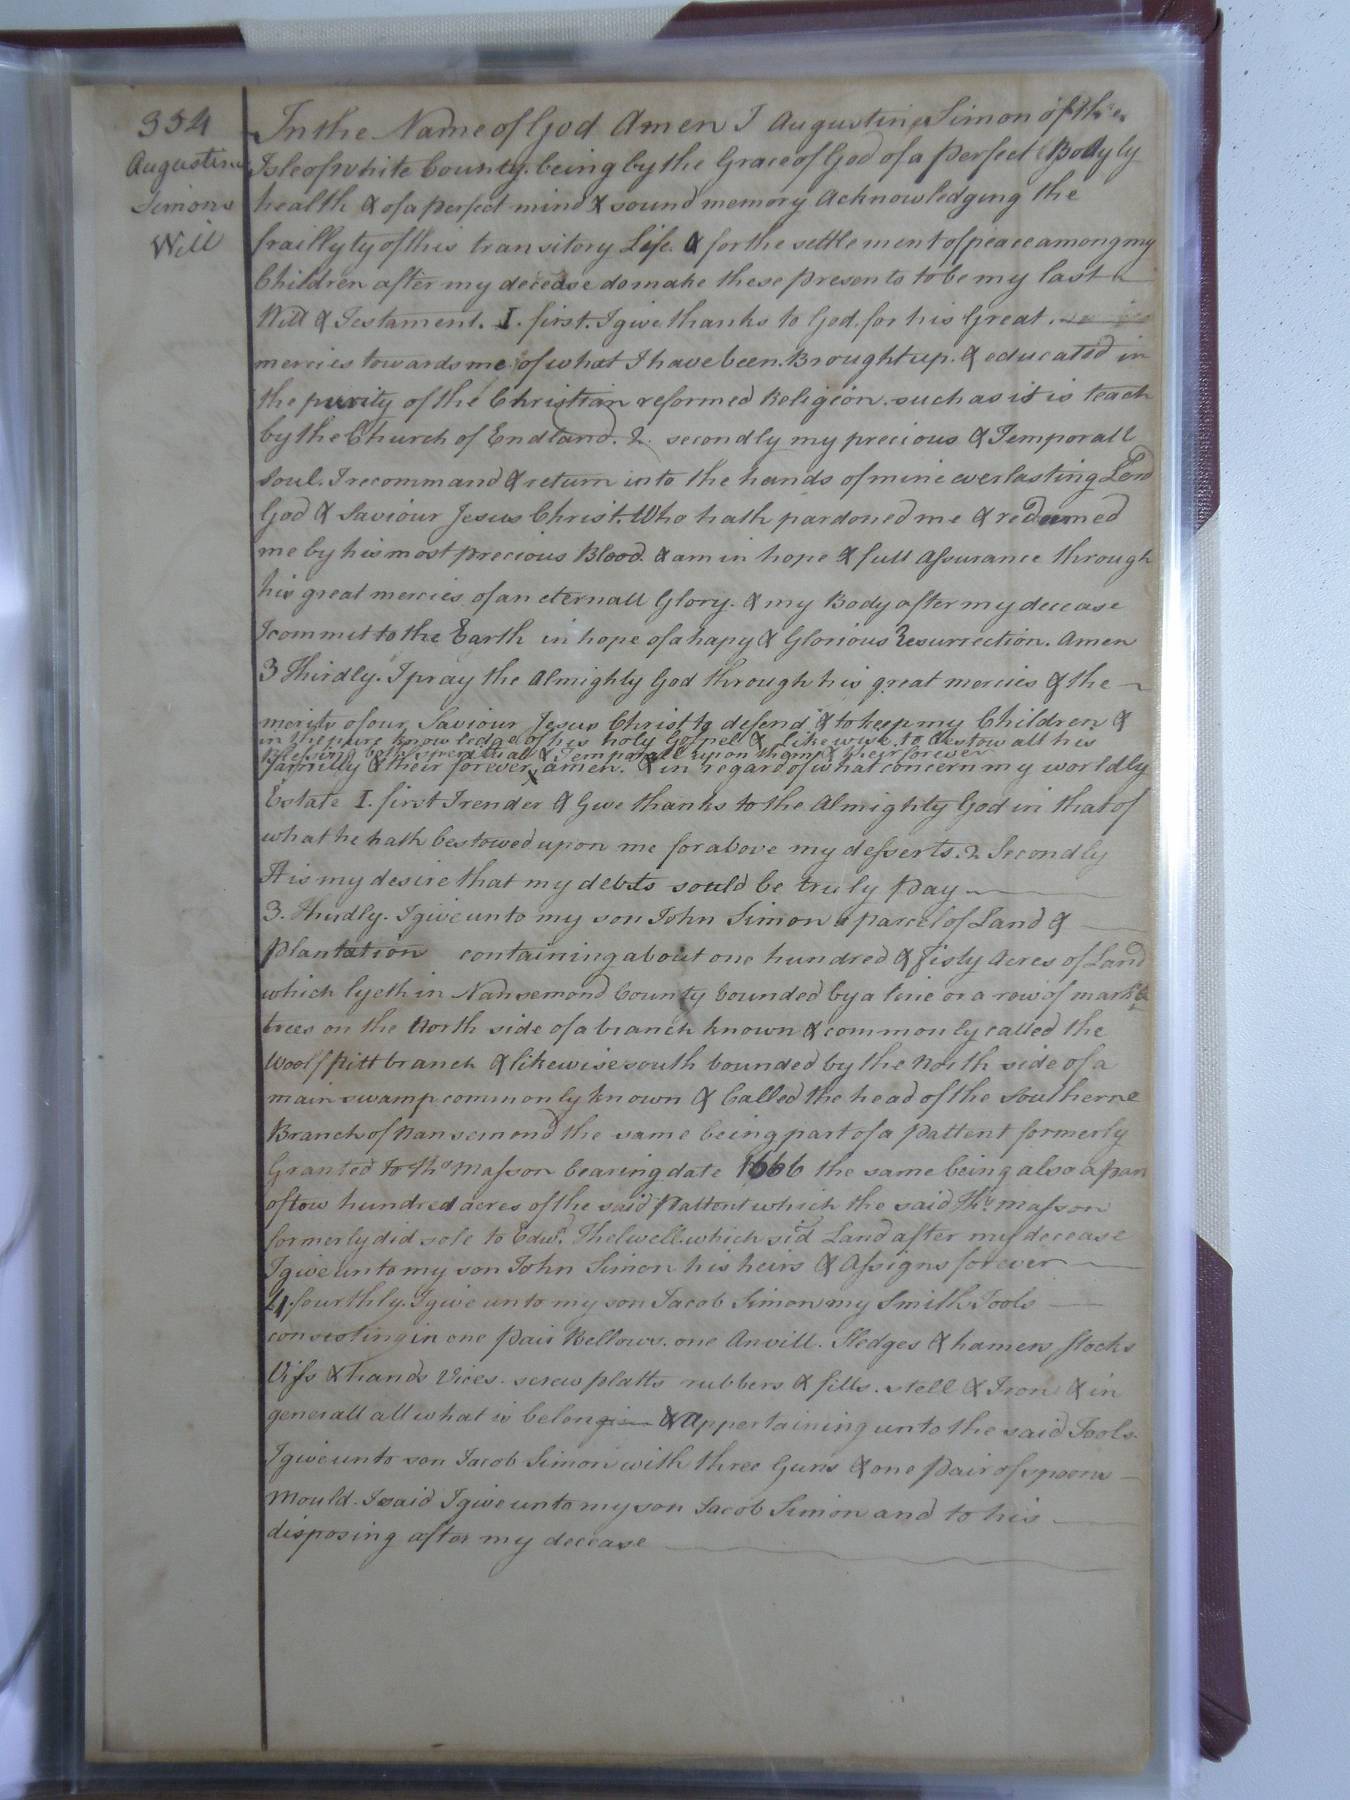 354
Augustine
Simons
Will
In the Name of God Amen I Augustine Simon of the
Isle of white County. being by the Grace of God of a perfect Bodyly
health & of a perfect mind & sound memory Acknowledging the
fraillyty of this transitory Life. & for the settlement of peace among my
Children after my decease do make these presents to be my last
Will & Testament. I. first. I give thanks to God for his Great.
mercies towards me of what I have been. Brought up. & educated in
the purity of the Christian reformed Religion. such as it is teach
by the Church of Endland. 2. secondly my precious & Temporall
Soul. I recommand & return into the hands of mine everlasting Lord
God & Saviour Jesus Christ. Who hath pardoned me & redeemed
me by his most precious Blood. & am in hope & full Assurance through
his great mercies of an eternall Glory. & my Body after my decease
I commit to the Earth in hope of a hapy & Glorious Resurrection. Amen
3 Thirdly. I pray the Almighty God through his great mercies & the
merits of our Saviour Jesus Christ to defend & to keep my Children &
in the pure knowledge of his holy Gospel & likewise to bestow all his
Blessing both spirittual & Temporall upon them & their forever
familly & their forever, amen. & in regard of what concern my worldly
Estate I. first I render & Give thanks to the Almighty God in that of
what he hath bestowed upon me for above my desserts. 2 Secondly
It is my desire that my debts sould be truly Pay
3. Thirdly. I give unto my son John Simon a parcel of Land &
Plantation containing about one hundred & fisly Acres of Land
which lyeth in Nansemond County bounded by a line or a row of markt
trees on the North side of a branch known & commonly called the
Woolf pitt branch & likewise south bounded by the North side of a
main swamp commonly known & Called the head of the Southerne
Branch of Nansemond the same being part of a Pattent formerly
Granted to Tho Masson bearing date 1666 the same being also a part
of tow hundred acres of the said Pattent which the said Tho Masson
formerly did sole to Edwd. Thelwell. which sid Land after my decease
I give unto my son John Simon his heirs & Assigns forever
4. fourthly. I give unto my son Jacob Simon my Smith Tools
consisting in one Pair Bellows. one Anvill. Sledges & hamers, Stocks
Viss & hands Vices. screw platts rubbers & fills. stell & Iron & in
generall all what is belonging & Appertaining unto the said Tools
I give unto son Jacob Simon with three Guns & one Pair of spoons
Mould. I said I give unto my son Jacob Simon and to his
disposing after my decease